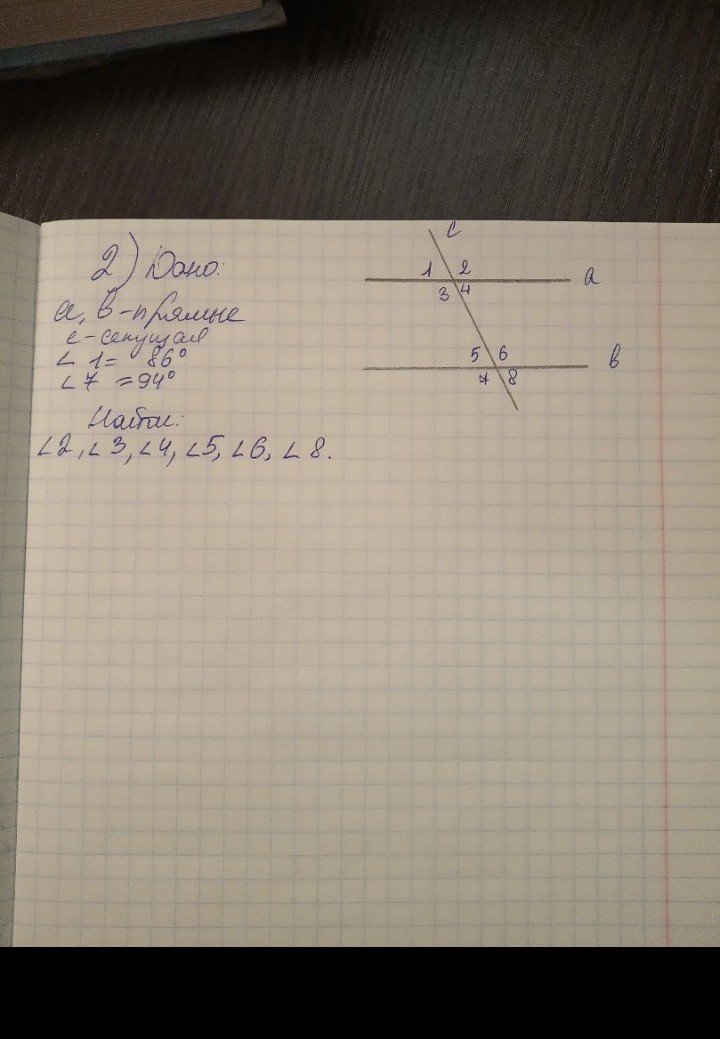 2) Дано:
a, b - прямые
c - секущая
∠ 1 = 86°
∠ 7 = 94°
Найти:
∠2, ∠3, ∠4, ∠5, ∠6, ∠8.
c
1 2
a
3 4
5 6
b
7 8